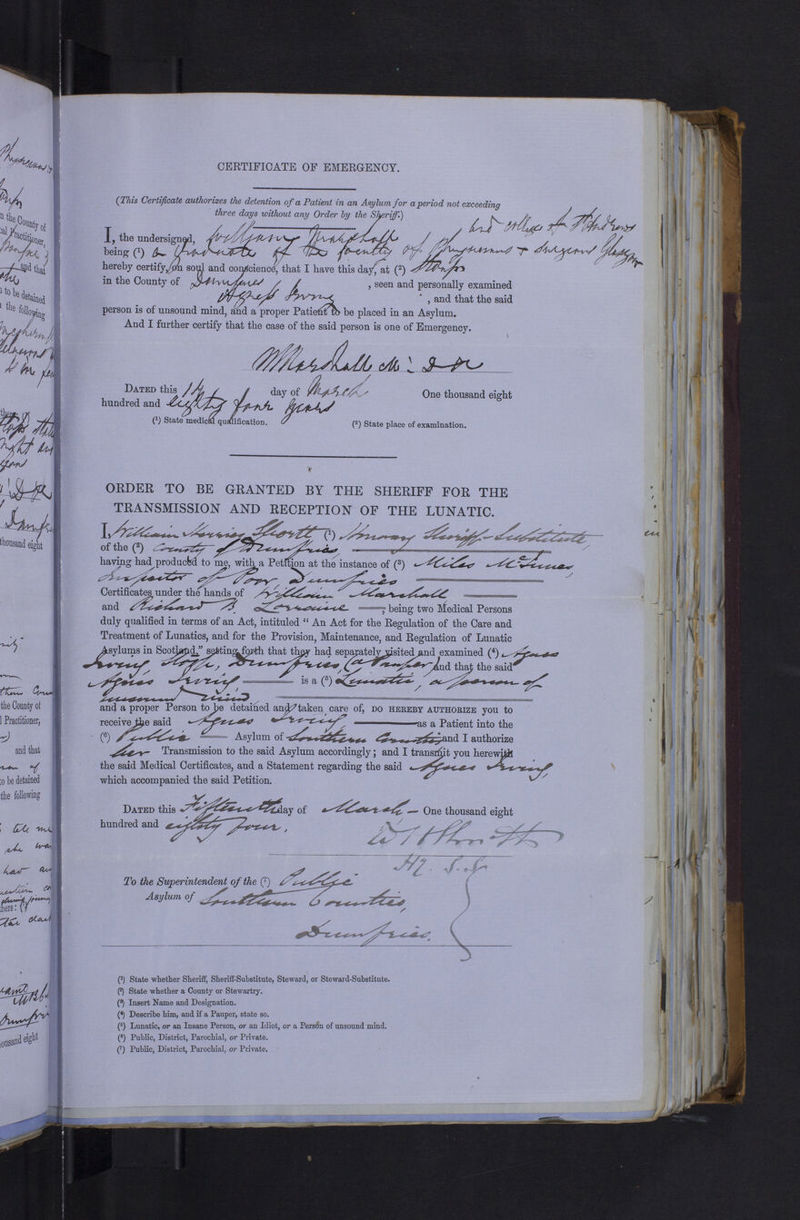 CERTIFICATE OF EMERGENCY.
(This Certificate authorizes the detention of a Patient in an Asylum for a period not exceeding
three days without any Order by the Sheriff.)
and College of St Andrews
I, the undersigned, William Marshall
being (¹) a Graduate of the faculty of Physicians + Surgeons Glasgow
hereby certify, on soul and conscience, that I have this day, at (²)
in the County of Dumfries , seen and personally examined
Agness Irving , and that the said
person is of unsound mind, and a proper Patient to be placed in an Asylum.
And I further certify that the case of the said person is one of Emergency.
W Marshall M.D
DATED this day of March One thousand eight
hundred and Eighty four years
(¹) State medical qualification. (²) State place of examination.
ORDER TO BE GRANTED BY THE SHERIFF FOR THE
TRANSMISSION AND RECEPTION OF THE LUNATIC.
I, William Shortt (¹) Honorary Sheriff-Substitute
of the (²) County of Dumfries
having had produced to me, with a Petition at the instance of (³) Miles
Inspector of Poor, Dumfries
Certificates under the hands of William Marshall
and Richard B. Lorraine , being two Medical Persons
duly qualified in terms of an Act, intituled “ An Act for the Regulation of the Care and
Treatment of Lunatics, and for the Provision, Maintenance, and Regulation of Lunatic
Asylums in Scotland,” setting forth that they had separately visited and examined (⁴) Agness
Irving, Dumfries, (a Pauper) and that the said
Agness Irving is a (⁵) Lunatic, a person of
unsound mind
and a proper Person to be detained and taken care of, DO HEREBY AUTHORIZE you to
receive the said Agness Irving as a Patient into the
(⁶) Public Asylum of Southern Counties and I authorize
her Transmission to the said Asylum accordingly ; and I transmit you herewith
the said Medical Certificates, and a Statement regarding the said Agness Irving,
which accompanied the said Petition.
DATED this Fifteenth day of March One thousand eight
hundred and eighty four.
W H Shortt
Hy. S.S.
To the Superintendent of the (⁷) Public
Asylum of Southern Counties,
Dumfries.
(¹) State whether Sheriff, Sheriff-Substitute, Steward, or Steward-Substitute.
(²) State whether a County or Stewartry.
(³) Insert Name and Designation.
(⁴) Describe him, and if a Pauper, state so.
(⁵) Lunatic, or an Insane Person, or an Idiot, or a Person of unsound mind.
(⁶) Public, District, Parochial, or Private.
(⁷) Public, District, Parochial, or Private.